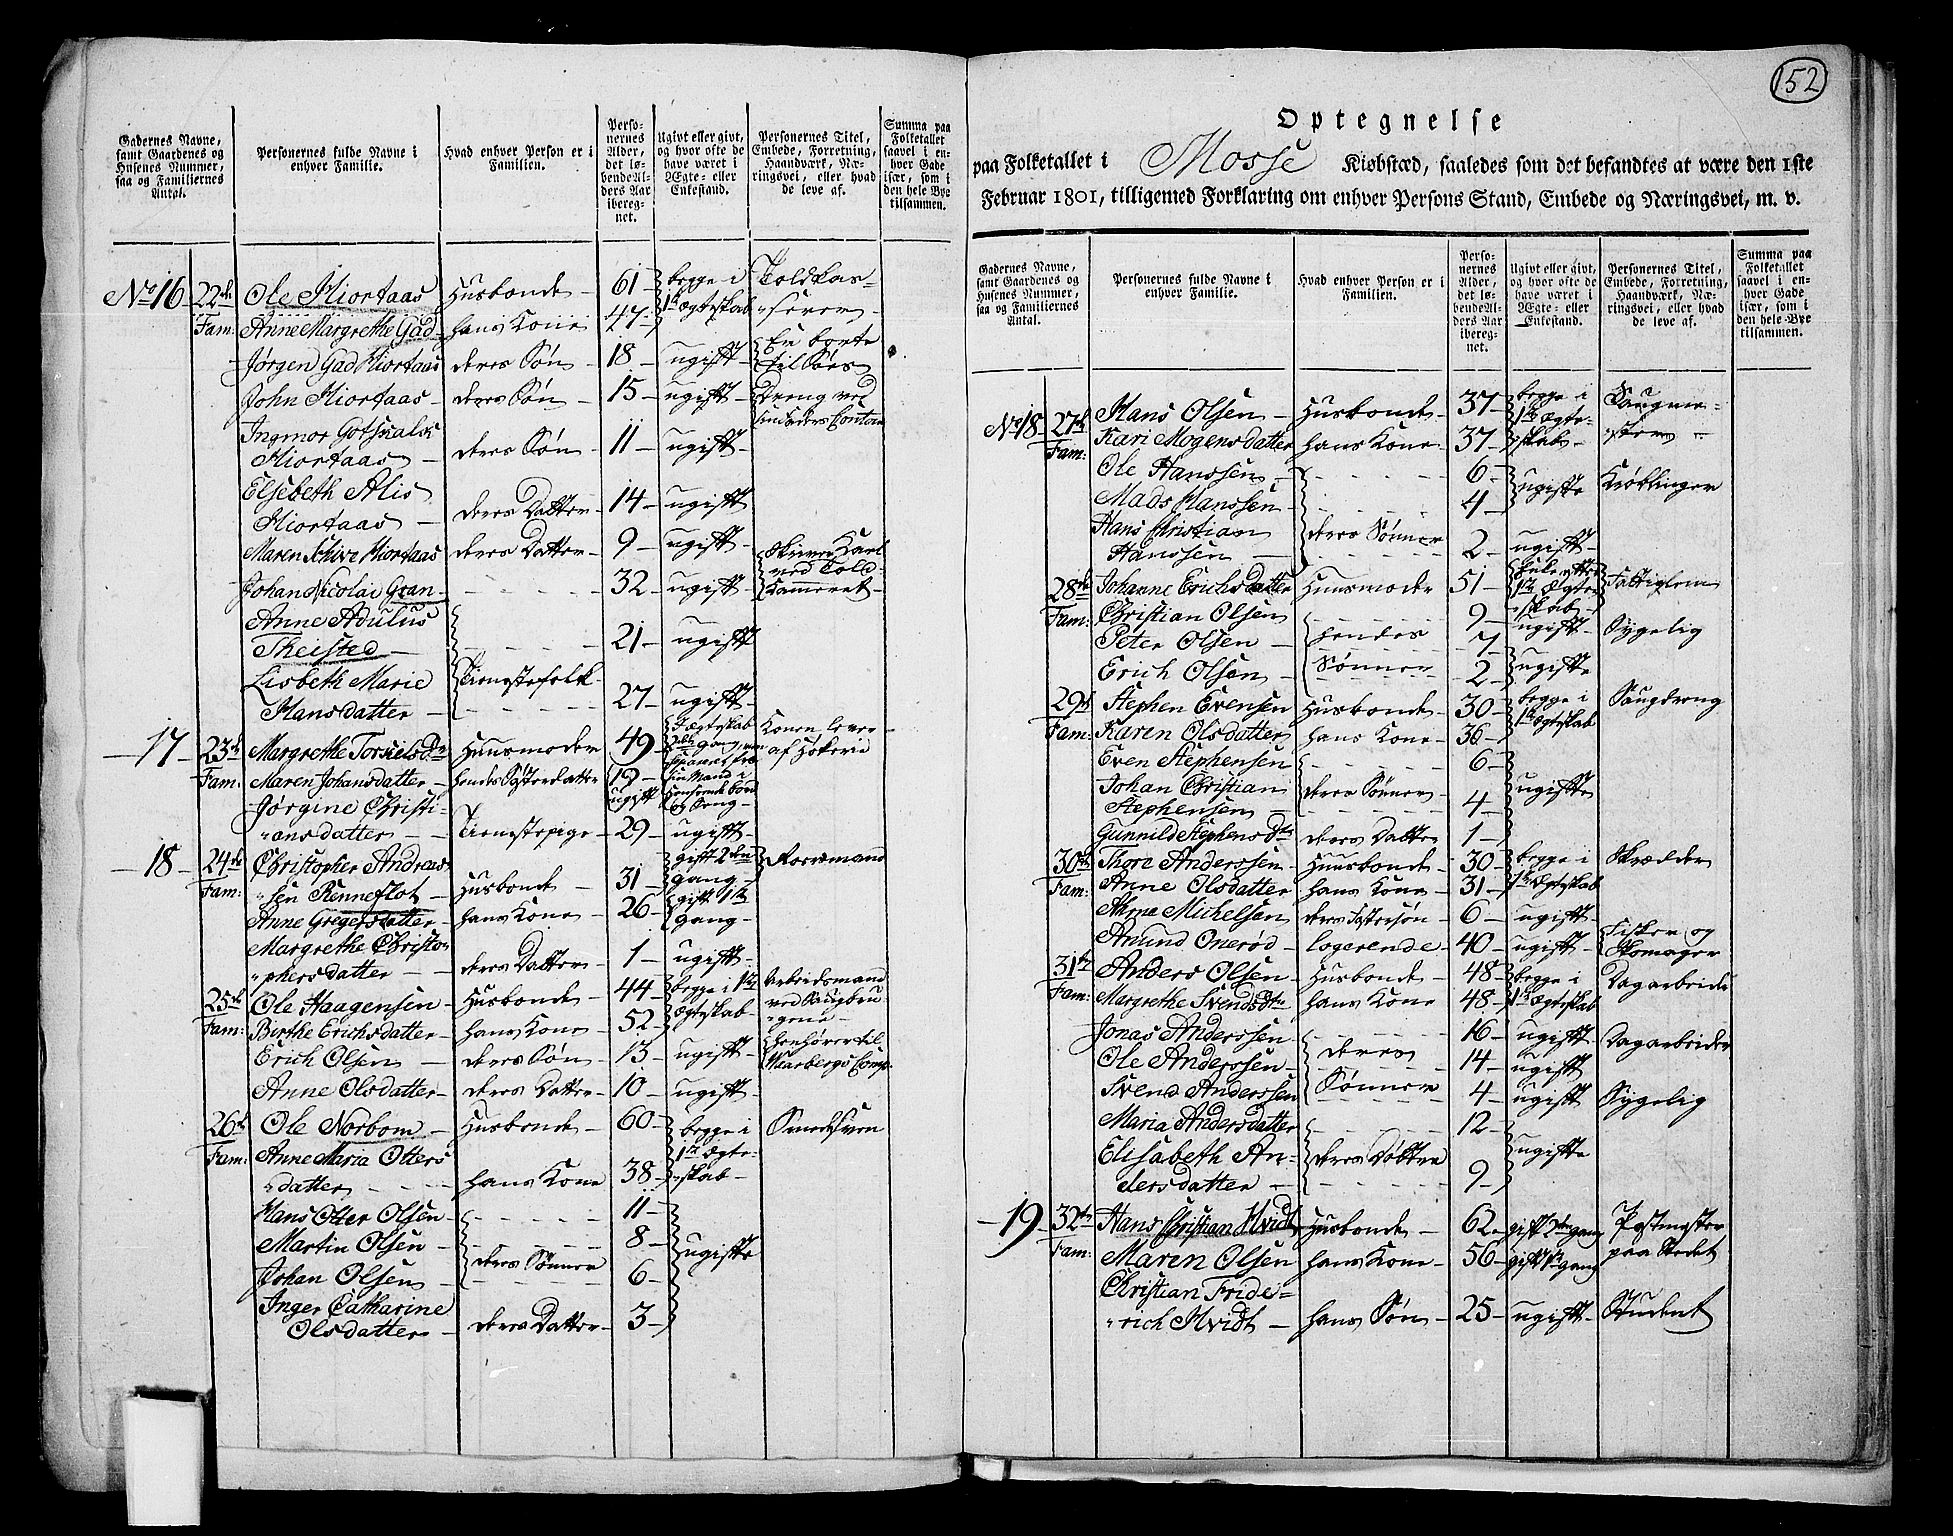 Gadernes Navne, samt Gaardenes og Husenes Nummer, saa og Familiernes Antal.
Personernes fulde Navne i enhver Familie.
Hvad enhver Person er i Familien.
Personernes Alder, det løbendeAlders Aar iberegnet.
Ugivt eller givt, og hvor ofte de have været i Ægte- eller Enkestand.
Personernes Titel, Embede, Forretning, Haandværk, Næringsvei, eller hvad de leve af.
Summa paa Folketallet saavel i enhver Gade især, som i den hele Bye tilsammen.
No 16 22de Ole Hiortaas Husbonde 61 begge i Toldkas-
Fam: Anne Margrethe Gad hans Kone 47 1te ægteskab serer
Jørgen Gad Hiortaas deres Søn 18 ugift Er borte til Søes
John Hiortaas deres Søn 15 ugift Dreng ved
Ingmor Gotskalk
Hiortaas deres Søn 11 ugift
Elsebeth Alis
Hiortaas deres Datter 14 ugift
Maren Schive Hiortaas deres Datter 9 ugift
Johan Nicolai Gran 32 ugift Skriver Karl ved Told Kammeret
Anne Adulus
Theisted 21 ugift
Lisbeth Marie Tienestefolk
Hansdatter 27 ugift
17 23de Margrethe Torkiels Dr Huusmoder 49 Konen lever af Hökerie
Fam: Maren Johansdatter hendes Søsterdatter 19 ugift
Jørgine Christi-
ansdatter Tienestepige 29 ugift
18 24de Christopher Andreas- gift 2den Korsmand
Fam: sen Renneflot Husbonde 31 gang
Anne Gregersdatter hans Kone 26 gift 1te gang
Margrethe Christo-
phersdatter deres Datter 1 ugift
25de Ole Haagensen Husbonde 44 begge i 1te Arbeidsmand
Fam: Birthe Erichsdatter hans Kone 52 ægteskab ved Saugbrugene
Erich Olsen deres Søn 13 ugift henhører til Comp.
Anne Olsdatter deres Datter 10 ugift
26de Ole Norbom Husbonde 60 begge i Smedsvend
Fam: Anne Maria Otters 1te Ægte-
datter hans Kone 38 skab
Hans Otter Olsen 11
Martin Olsen 8 ugifte
Johan Olsen deres Sønner 6
Inger Catharine
Olsdatter deres Datter 3
152
Optegnelse
paa Folketallet i Mosse Kiøbstæd, saaledes som det befandtes at være den 1ste
Februar 1801, tilligemed Forklaring om enhver Persons Stand, Embede og Næringsvei, m. v.
Gadernes Navne, samt Gaardenes og Husenes Nummer, saa og Familiernes Antal.
Personernes fulde Navne i enhver Familie.
Hvad enhver Person er i Familien.
Personernes Alder, det løbendeAlders Aar iberegnet.
Ugivt eller givt, og hvor ofte de have været i Ægte- eller Enkestand.
Personernes Titel, Embede, Forretning, Haandværk, Næringsvei, eller hvad de leve af.
Summa paa Folketallet saavel i enhver Gade især, som i den hele Bye tilsammen.
No 18 27de Hans Olsen Husbonde 37 begge i Saugme-
Fam: Kari Mogensdatter hans Kone 37 1te Ægteskab ster
Ole Hanssen 6 ugifte Krøblinger
Mads Hanssen 4
Hans Christian deres Sønner
Hanssen 2 ugift
28de Johanne Erichsdatter Huusmoder 51 Enke efter 1te Ægteskab Fattiglem
Fam: Christian Olsen 9 ugift Sygelig
Peter Olsen hendes 7
Erich Olsen Sønner 2 ugifte
29de Stephen Evensen Husbonde 30 begge i Saugdreng
Fam: Karen Olsdatter hans Kone 36 1te ægteskab
Even Stephensen 6
Johan Christian deres Sønner ugifte
Stephensen 4
Gunnild Stephens Dtr deres Datter 1
30te Thore Anderssen Huusbonde 30 begge i Skrædder
Fam: Anne Olsdatter hans Kone 31 1te Ægteskab
Michelsen deres Fostersøn 6 ugift
Amund Onerød logerende 40 ugift Fisker og Skomager
31te Anders Olsen Husbonde 48 begge i Dagarbeider
Fam: Margrethe Svends Dtr hans Kone 48 1te Ægteskab
Jonas Anderssen 16 ugift Dagarbeider
Ole Anderssen deres 14 ugift
Svend Anderssen Sønner 4 ugift Sygelig
Maria Andersdatter 12
Elisabeth An- deres Døttre ugifte
dersdatter 9
19 32te Hans Christian Hvidt Husbonde 62 gift 2den gang Postmester
Fam: Maren Olsen hans Kone 56 gift 1te gang paa Stedet
Christian Fride-
rich Hvidt hans Søn 25 ugift Student